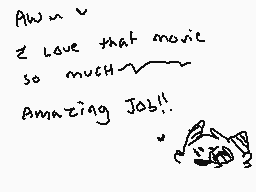 Aw ~
I Love that movie
so much~
Amazing Job!!